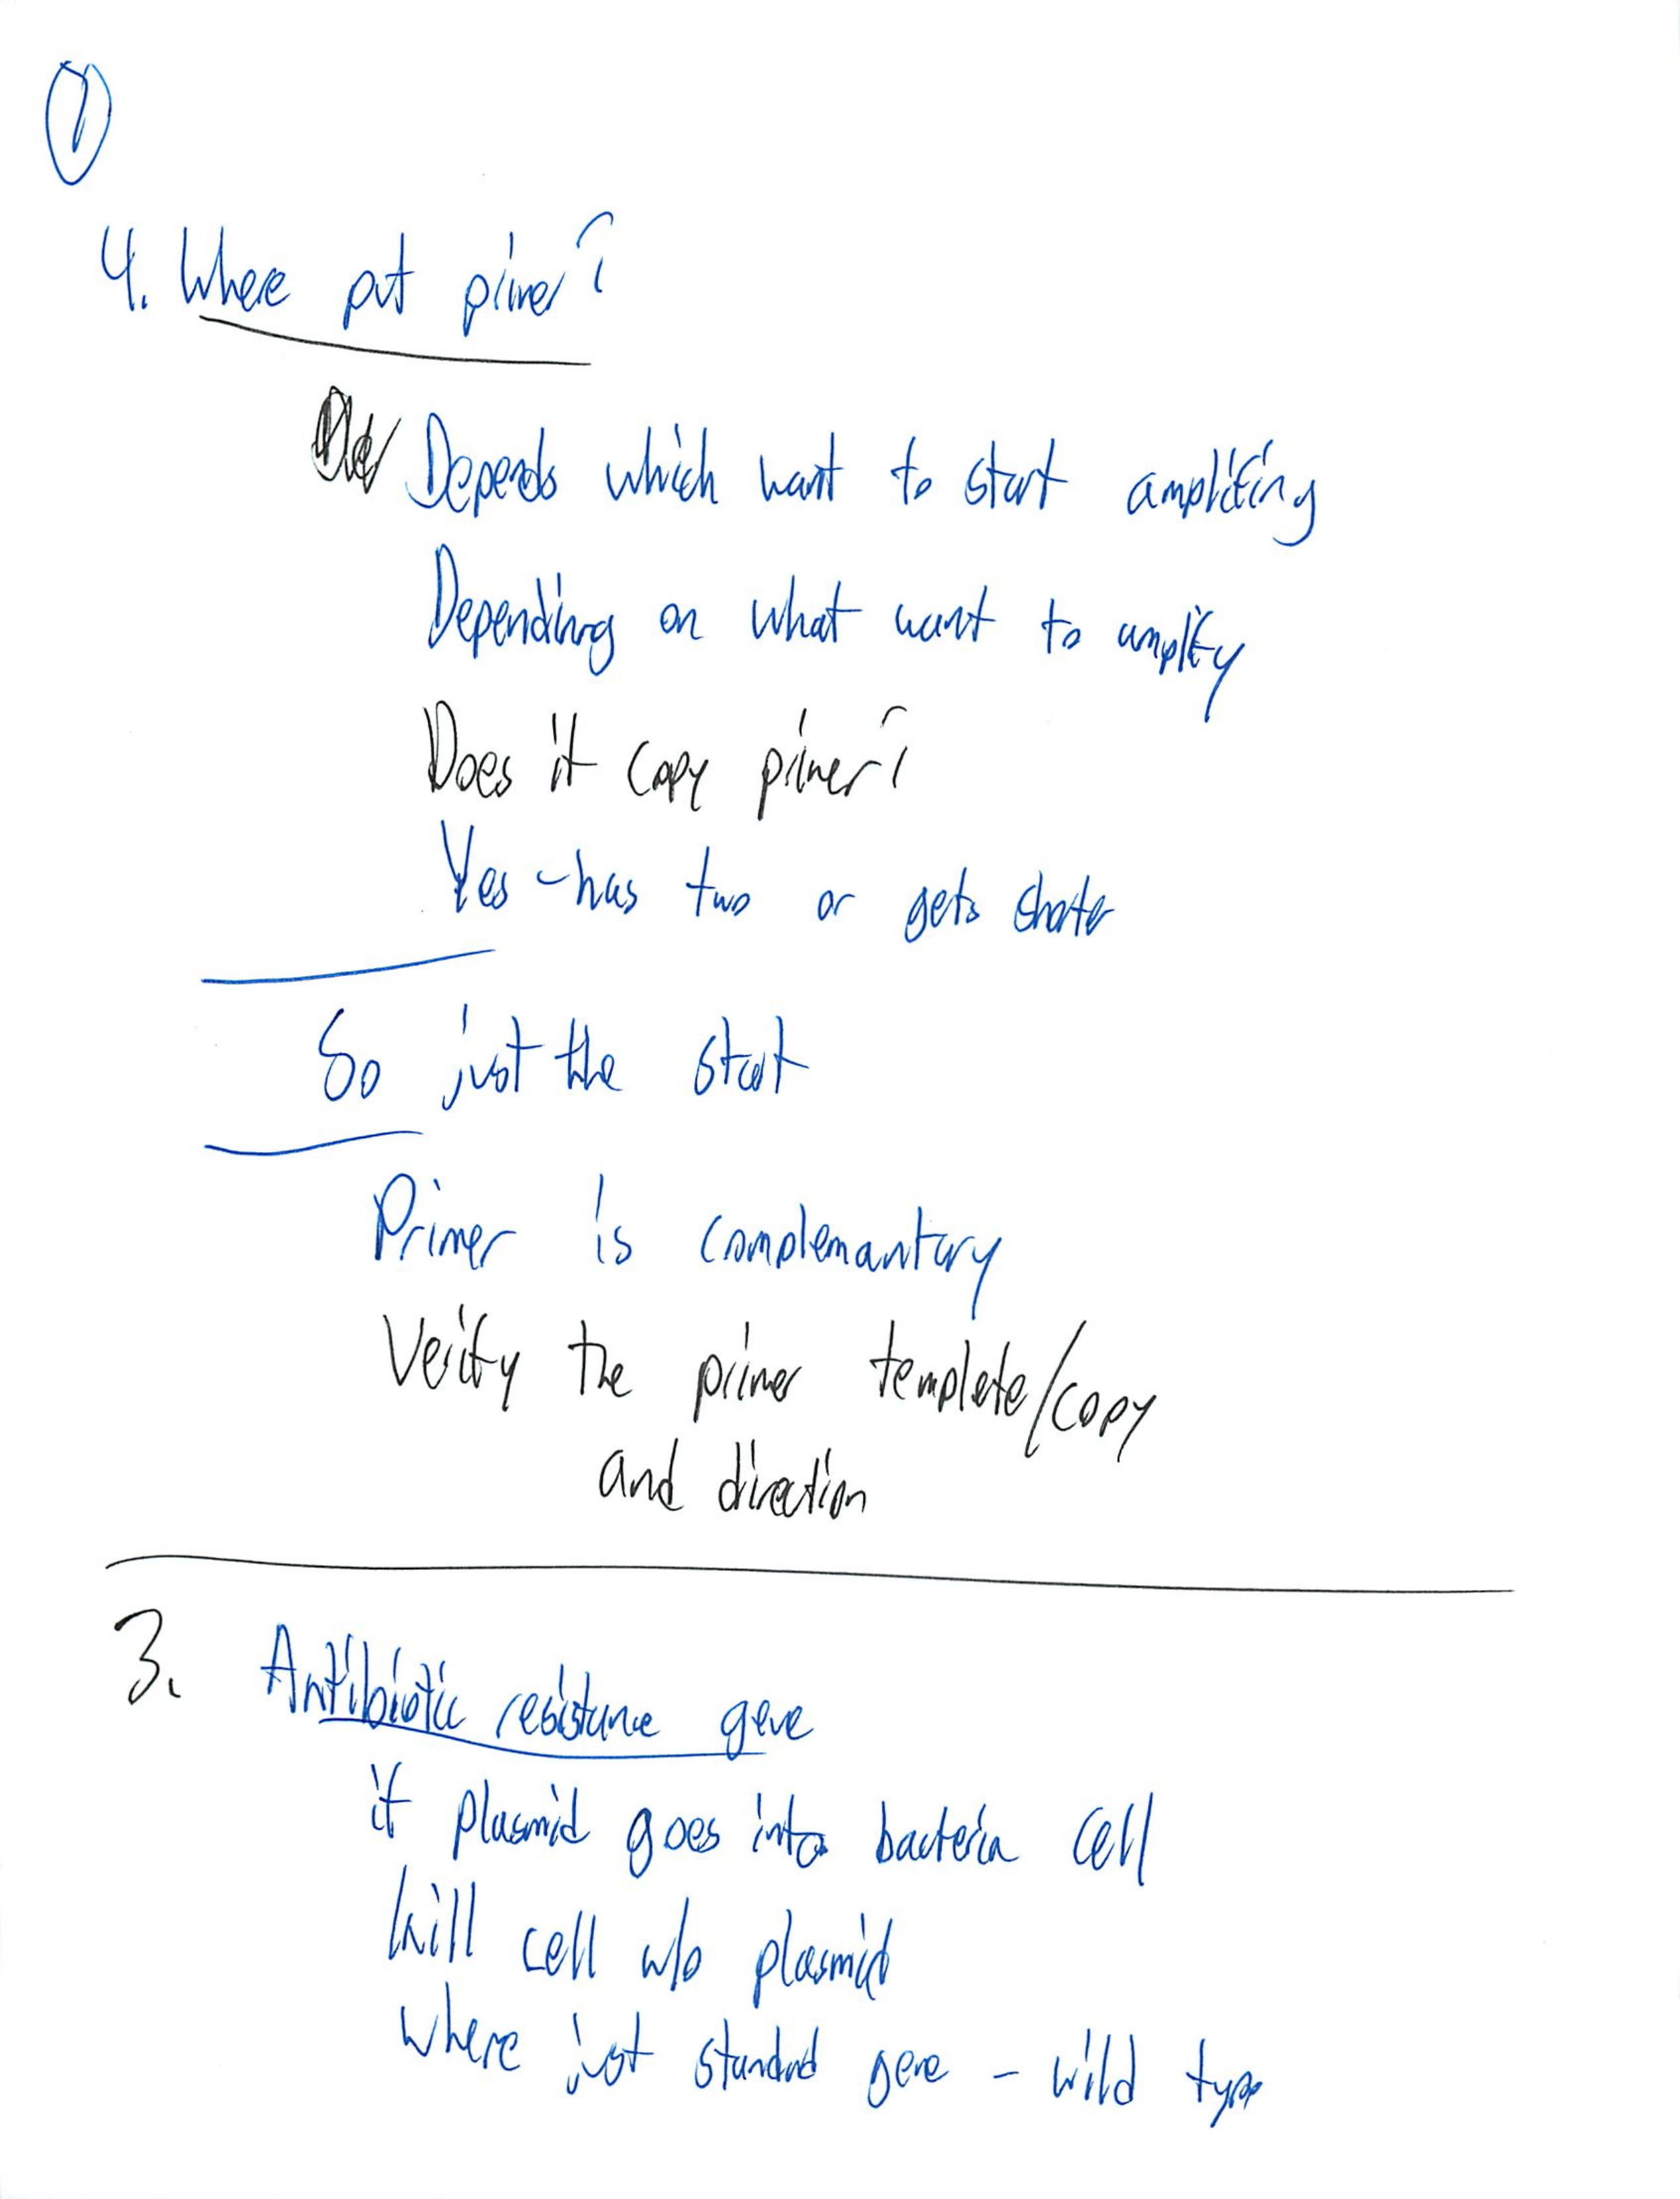 1
4. Where put primer?
Depends which want to start amplifing
Depending on what want to amplify
Does it copy primer?
Yes - has two or gets shorter
So just the start
Primer is complemantary
Verify the primer template/copy
and direction
3. Antibiotic resistance gene
if plasmid goes into bacteria cell
kill cell w/o plasmid
where just standard gene - wild type